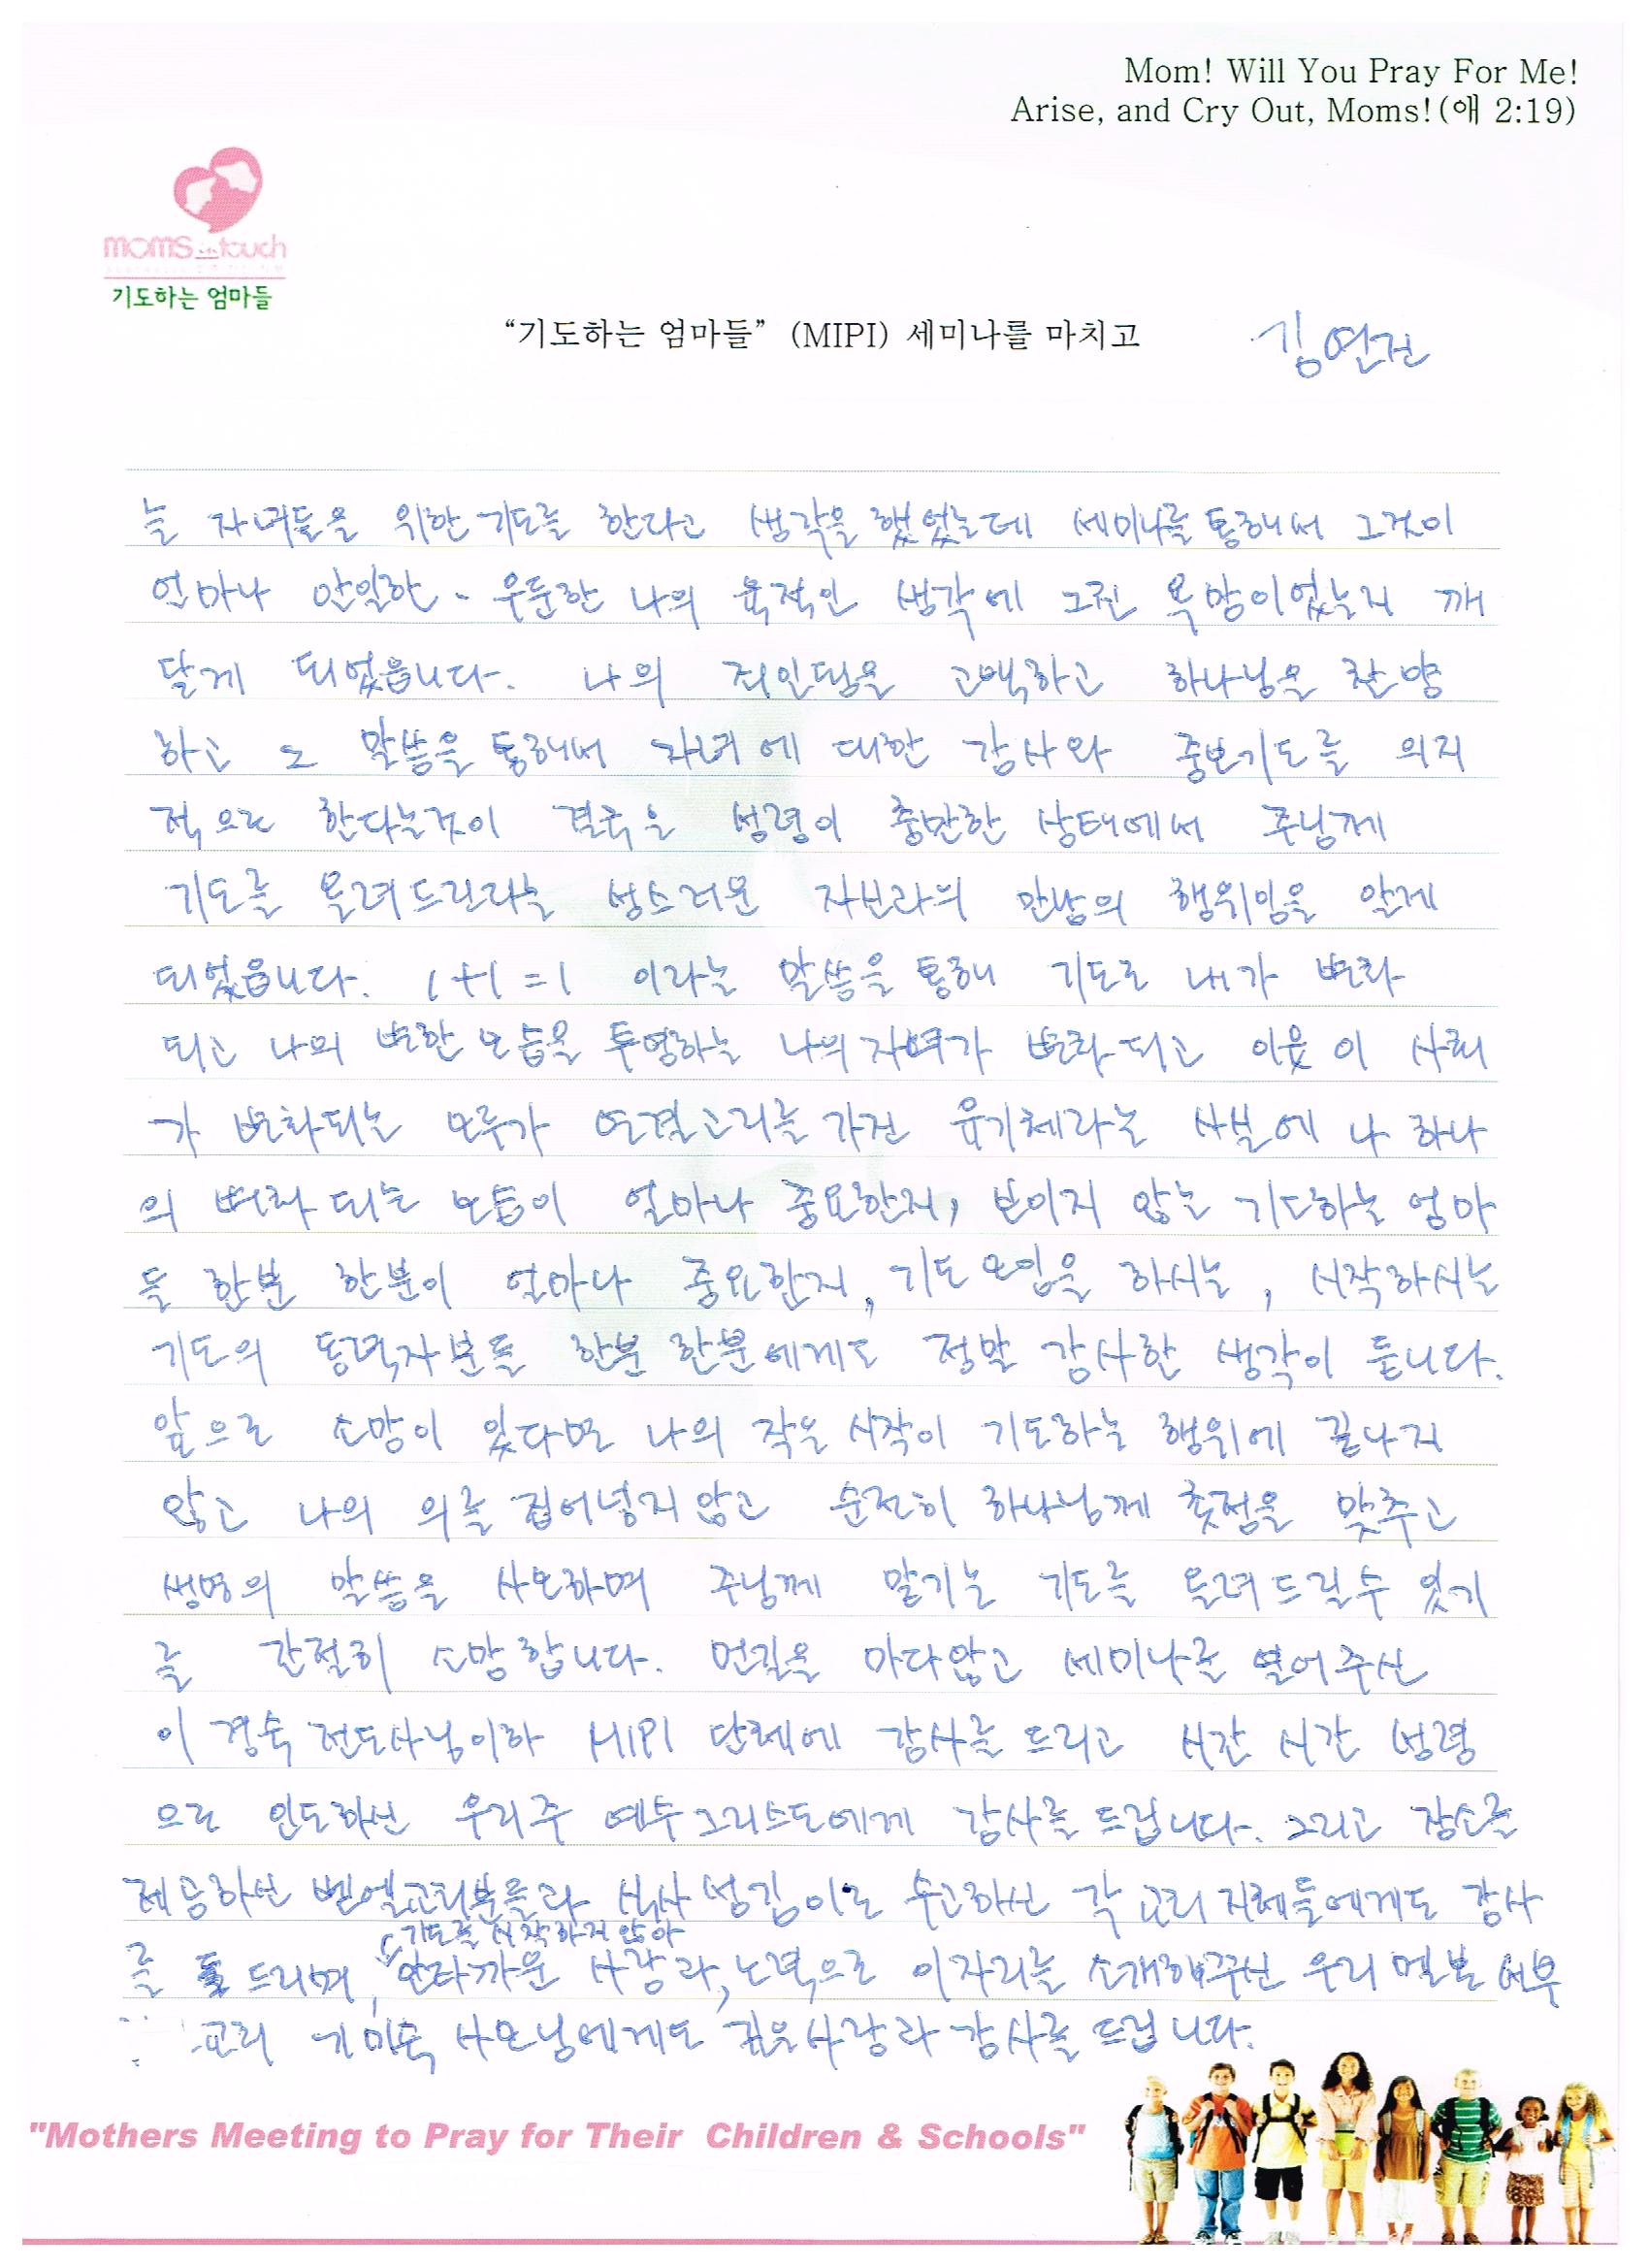 Mom! Will You Pray For Me!
Arise, and Cry Out, Moms!(애 2:19)
moms in touch
기도하는 엄마들
“기도하는 엄마들” (MIPI) 세미나를 마치고
김연진
늘 자녀들을 위한 기도를 한다고 생각을 했었는데 세미나를 통해서 그것이
얼마나 안일한 - 우둔한 나의 육적인 생각에 그친 욕망이었는지 깨
달게 되었읍니다. 나의 죄인됨을 고백하고 하나님을 찬양
하고 또 말씀을 통해서 자녀에 대한 감사와 중보기도를 의지
적으로 한다는것이 결국은 성령이 충만한 상태에서 주님께
기도를 올려드린다는 성스러운 자신과의 만남의 행위임을 알게
되었읍니다. 1+1=1 이라는 말씀을 통해 기도로 내가 변화
되고 나의 변한 모습을 투영하는 나의 자녀가 변화되고 이웃이 사회
가 변화되는 모두가 연결고리를 가진 유기체라는 사실에 나 하나
의 변화되는 모습이 얼마나 중요한지, 보이지 않는 기도하는 엄마
들 한분 한분이 얼마나 중요한지, 기도모임을 하시는, 시작하시는
기도의 동력자분들 한분 한분에게도 정말 감사한 생각이 듭니다.
앞으로 소망이 있다면 나의 작은 시작이 기도하는 행위에 끝나지
않고 나의 의를 집어넣지않고 순전히 하나님께 촛점을 맞추고
생명의 말씀을 사모하며 주님께 맡기는 기도를 올려드릴수 있기
를 간절히 소망합니다. 먼길을 마다않고 세미나를 열어주신
이경숙 전도사님이하 MIPI 단체에 감사를 드리고 시간 시간 성령
으로 인도하신 우리주 예수그리스도에게 감사를 드립니다. 그리고 장소를
제공하신 벧엘교회분들과 식사 섬김이로 수고하신 각 교회 지체들에게도 감사
기도를 시작하지 않아
를 드리며, 안타까운 사랑과, 노력으로 이자리를 소개해주신 우리 멜본 서부
교회 사모님에게도 깊은사랑과 감사를 드립니다.
"Mothers Meeting to Pray for Their Children & Schools"